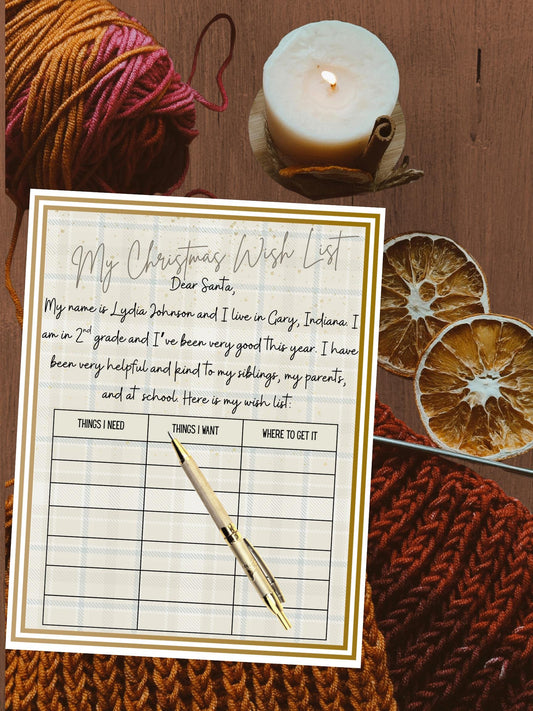 My Christmas Wish List
Dear Santa,
My name is Lydia Johnson and I live in Gary, Indiana. I
am in 2nd grade and I've been very good this year. I have
been very helpful and kind to my siblings, my parents,
and at school. Here is my wish list:
THINGS I NEED THINGS I WANT WHERE TO GET IT